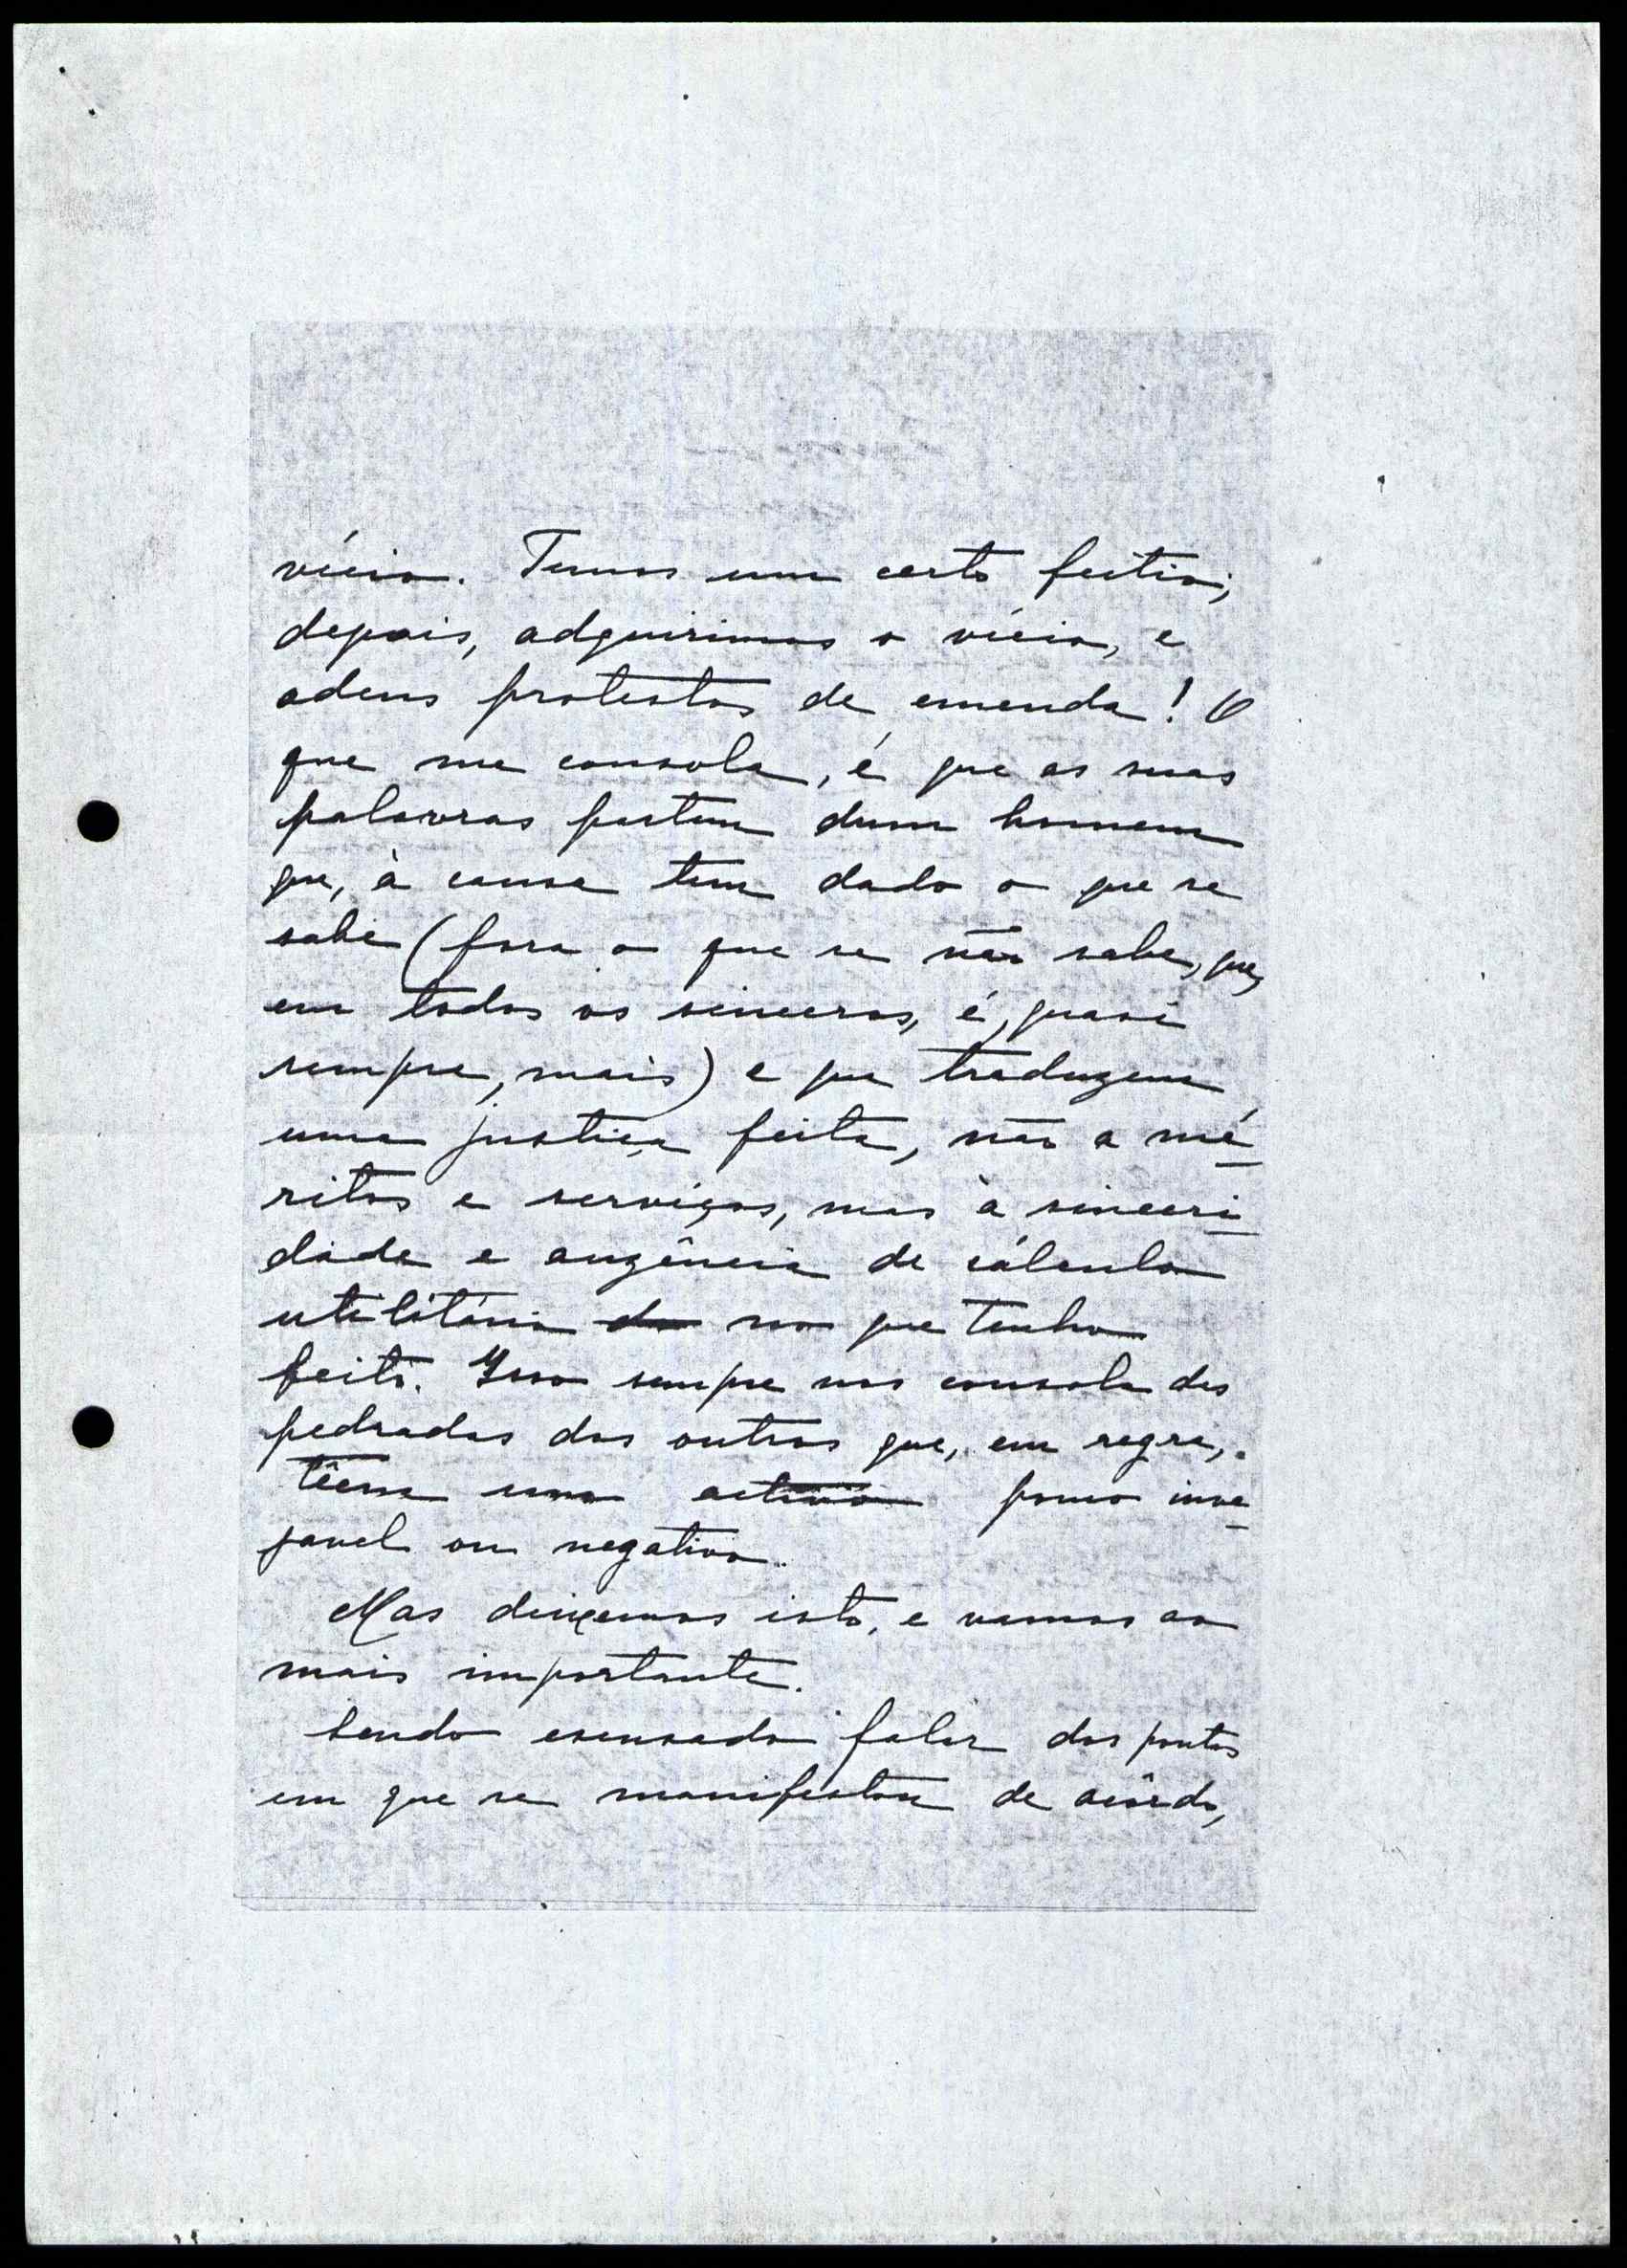 vício. Temos um certo feitio;
depois, adquirimos o vício, e
adeus protestos de emenda! O
que me consola, é que as suas
palavras partem dum homem
que, à causa tem dado o que se
sabe (fora o que se não sabe, que,
em todos os sinceros, é, quasi
sempre, mais) e que traduzem
uma justiça feita, não a mé-
ritos e serviços, mas à sinceri-
dade e auzência de cálculo
utilitário no que tenho
feito. Isso sempre nos consola das
pedradas dos outros que, em regra,
têem um activo pouco inve-
javel ou negativo.
Mas deixemos isto, e vamos ao
mais importante.
Sendo escusado falar dos pontos
em que se manifestou de acôrdo,